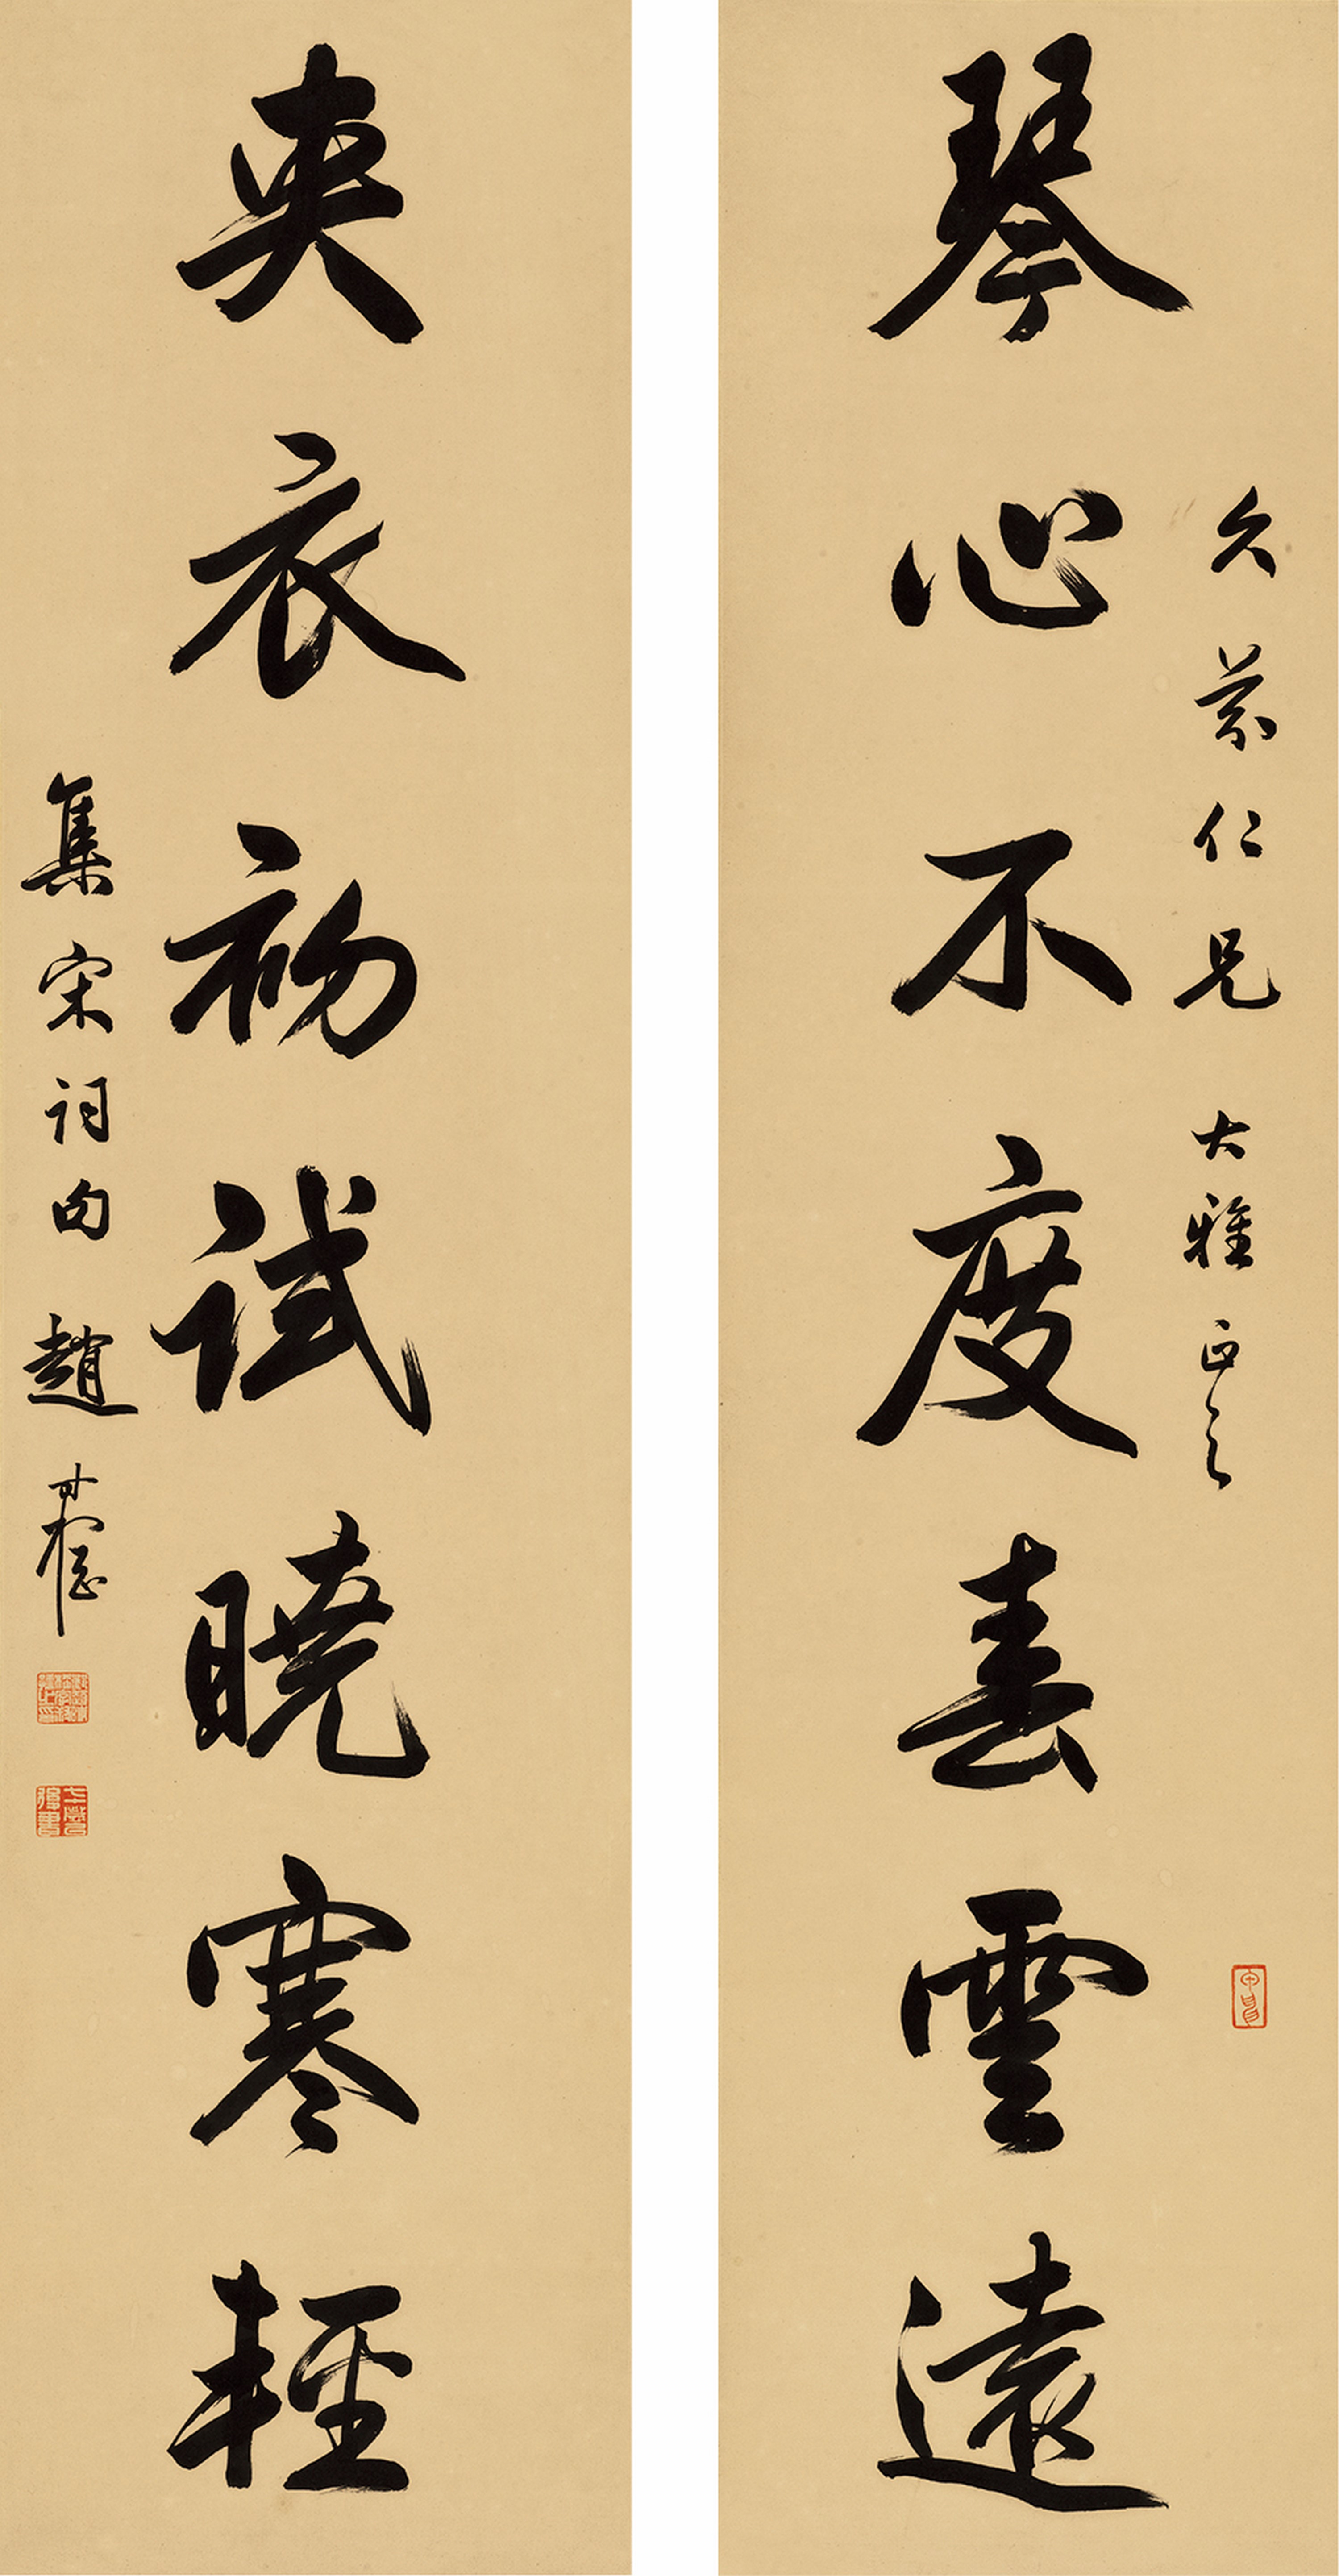 久芬仁兄大雅正之
琴心不度春雲遠
夾衣初試曉寒輕
集宋詞句趙時棡